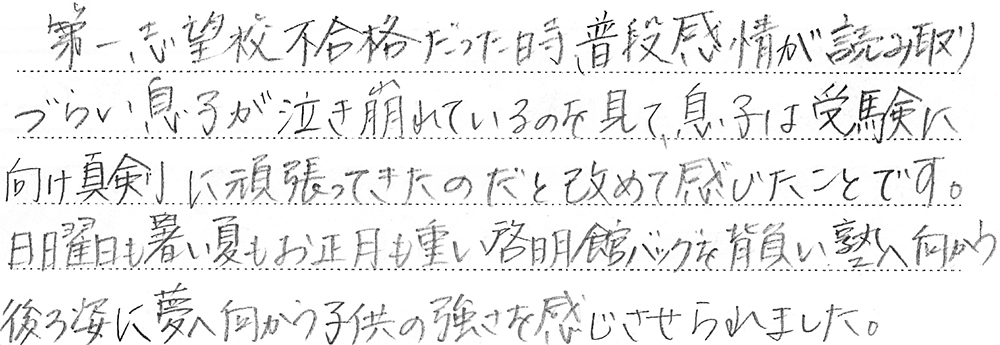 第一志望校不合格だった時、普段感情が読み取り
づらい息子が泣き崩れているのを見て、息子は受験に
向け真剣に頑張ってきたのだと改めて感じたことです。
日曜日も暑い夏もお正月も重い啓明館バッグを背負い塾へ向かう
後ろ姿に夢へ向かう子供の強さを感じさせられました。